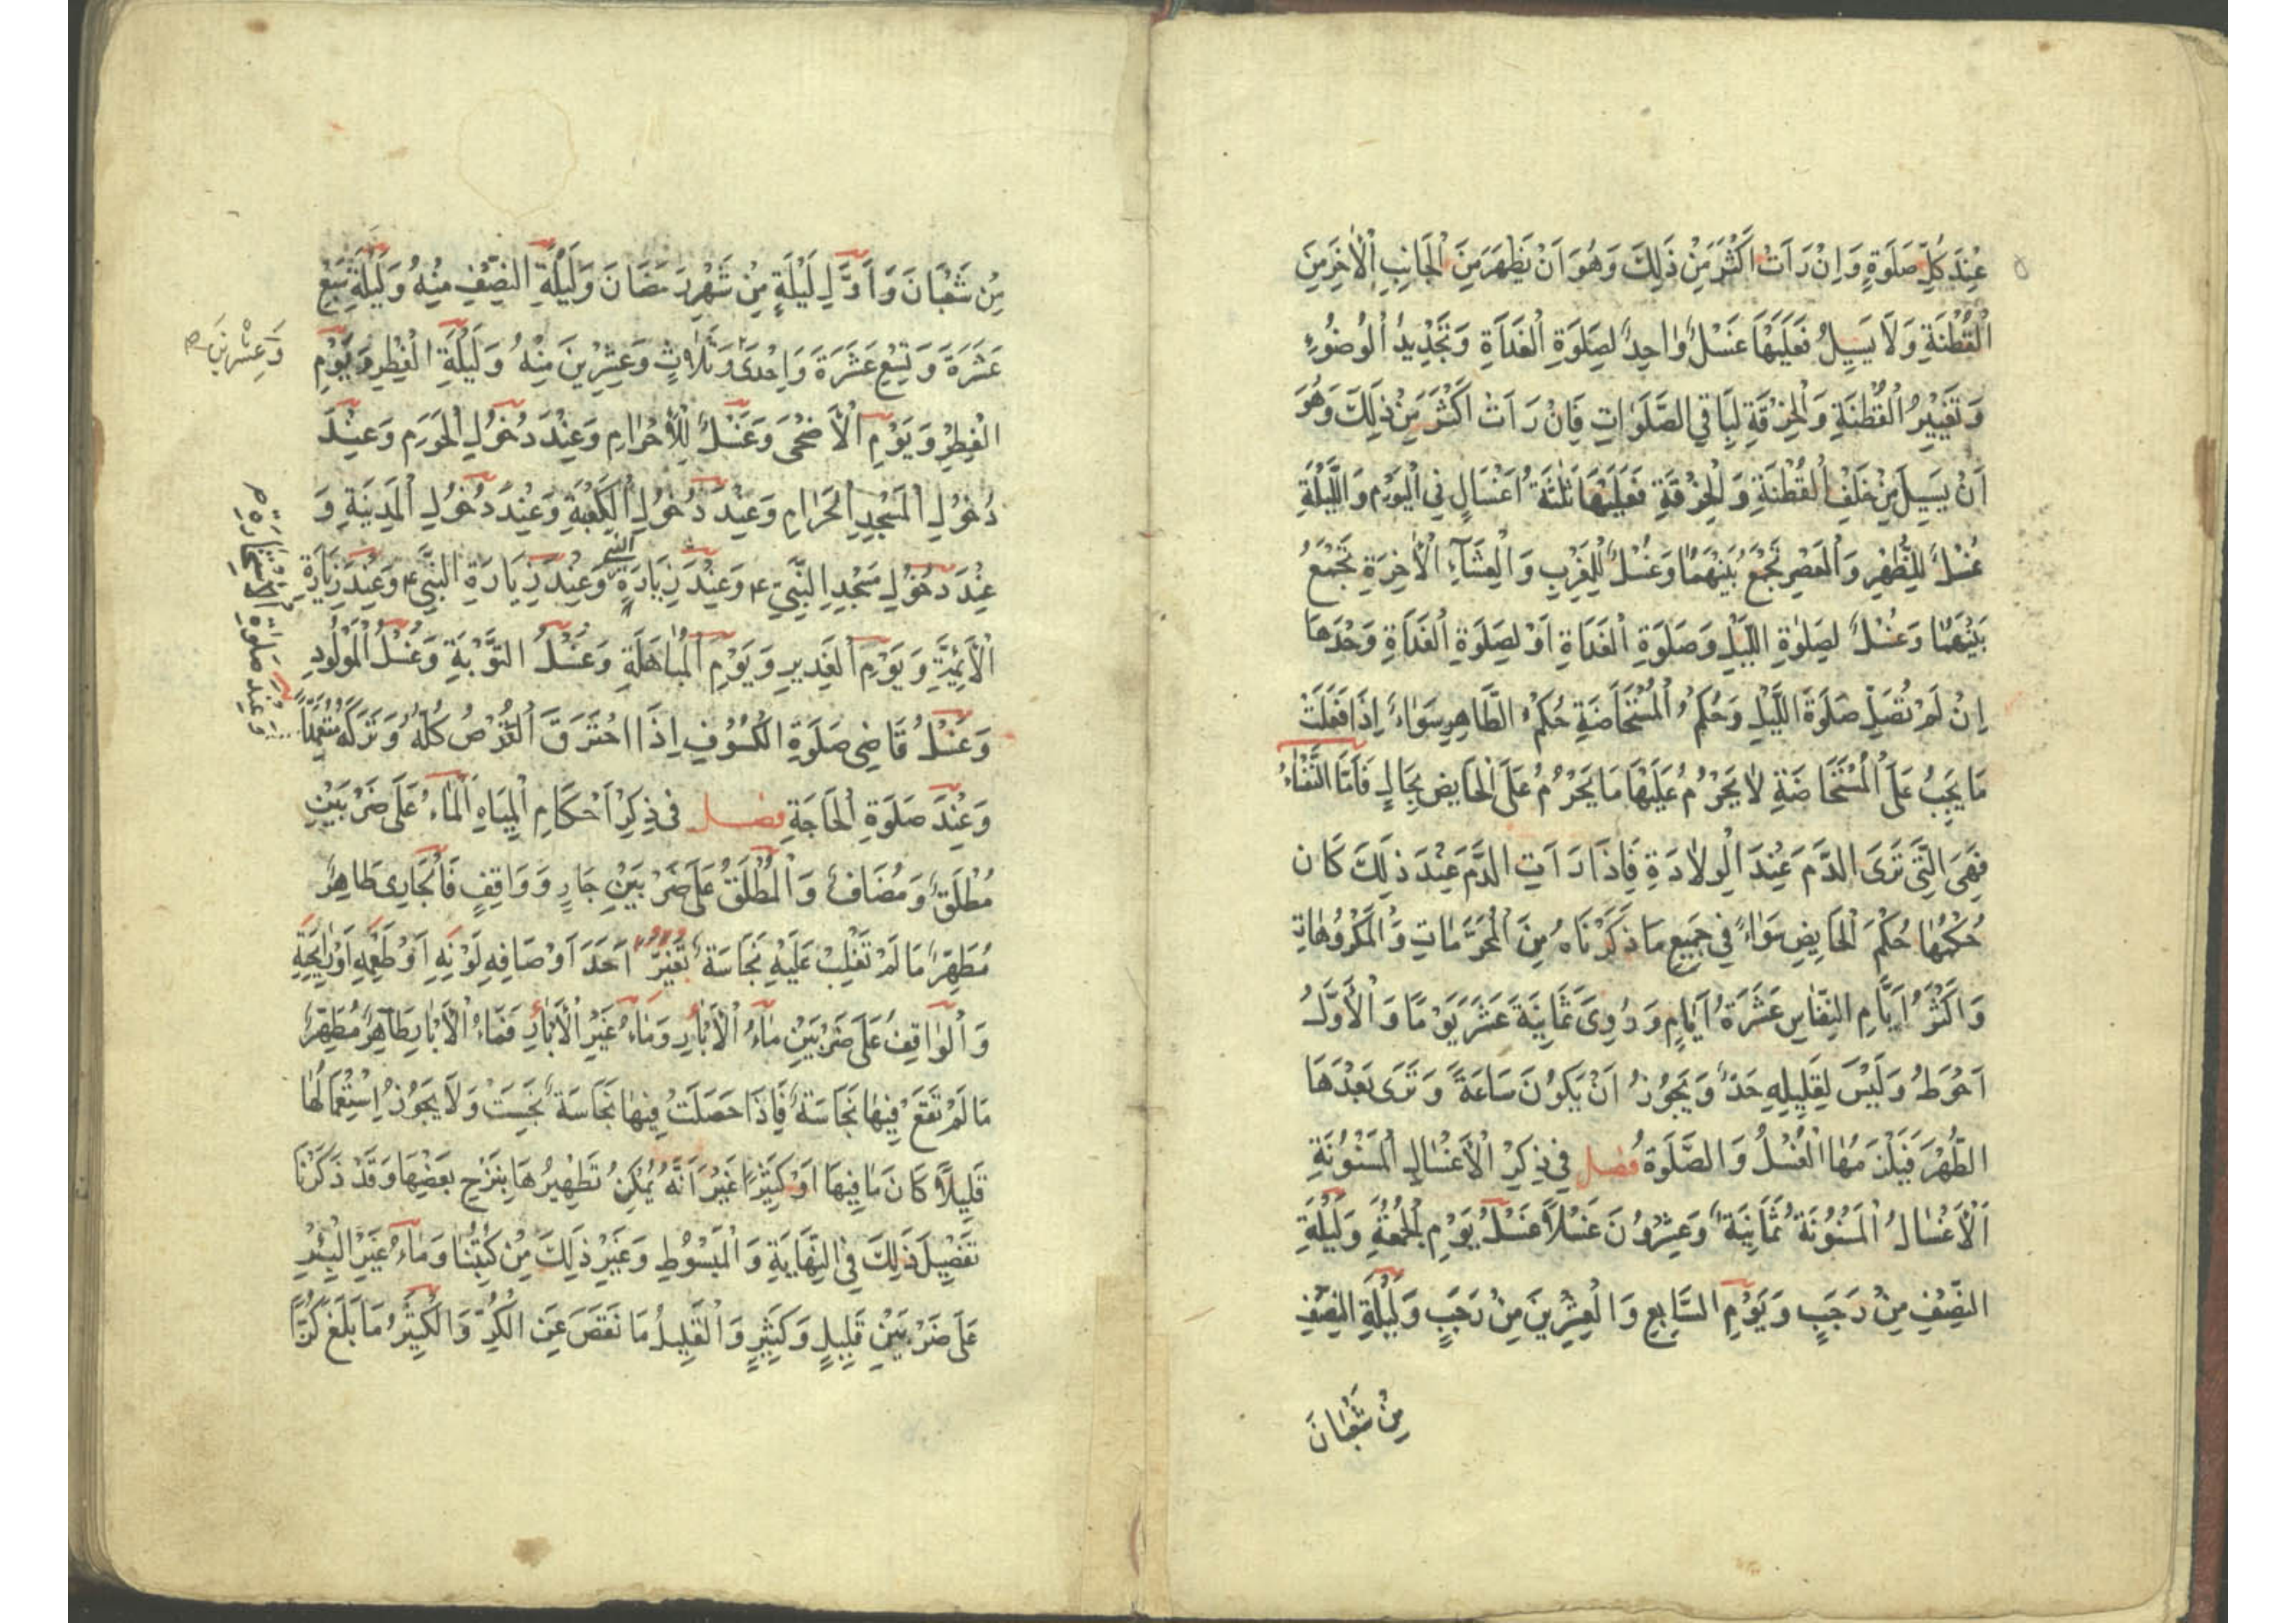 عِنْدَ كُلِّ صَلَوةٍ وَاِنْ رَاَتْ اَكْثَرَ مِنْ ذٰلِكَ وَهُوَ اَنْ يَظْهَرَ مِنَ الْجَانِبِ الْاٰخَرِ مِنَ
الْقُطْنَةِ وَلَا يَسِيلُ فَعَلَيْهَا غُسْلٌ وَاحِدٌ لِصَلَوةِ الْغَدَاةِ وَتَجْدِيدُ الْوُضُوءِ
وَتَغْيِيرُ الْقُطْنَةِ وَالْخِرْقَةِ لِبَاقِي الصَّلَوَاتِ فَاِنْ رَاَتْ اَكْثَرَ مِنْ ذٰلِكَ وَهُوَ
اَنْ يَسِيلَ مِنْ خَلْفِ الْقُطْنَةِ وَالْخِرْقَةِ فَعَلَيْهَا ثَلٰثَةُ اَغْسَالٍ فِي الْيَوْمِ وَاللَّيْلَةِ
غُسْلٌ لِلظُّهْرِ وَالْعَصْرِ تَجْمَعُ بَيْنَهُمَا وَغُسْلٌ لِلْمَغْرِبِ وَالْعِشَاءِ الْاٰخِرَةِ تَجْمَعُ
بَيْنَهُمَا وَغُسْلٌ لِصَلٰوةِ اللَّيْلِ وَصَلَوةِ الْغَدَاةِ اَوْ لِصَلَوةِ الْغَدَاةِ وَحْدَهَا
اِنْ لَمْ تُصَلِّ صَلَوةَ اللَّيْلِ وَحُكْمُ الْمُسْتَحَاضَةِ حُكْمُ الطَّاهِرِ سَوَاءٌ اِذَا فَعَلَتْ
مَا يَجِبُ عَلَى الْمُسْتَحَاضَةِ لَا يَحْرُمُ عَلَيْهَا مَا يَحْرُمُ عَلَى الْحَايِضِ بِحَالٍ فَاَمَّا النُّفَسَاءُ
فَهِيَ الَّتِي تَرَى الدَّمَ عِنْدَ الْوِلَادَةِ فَاِذَا رَاَتِ الدَّمَ عِنْدَ ذٰلِكَ كَانَ
حُكْمُهَا حُكْمَ الْحَايِضِ سَوَاءً فِي جَمِيعِ مَا ذَكَرْنَاهُ مِنَ الْمُحَرَّمَاتِ وَالْمَكْرُوهَاتِ
وَاَكْثَرُ اَيَّامِ النِّفَاسِ عَشَرَةُ اَيَّامٍ وَرُوِيَ ثَمَانِيَةَ عَشَرَ يَوْمًا وَالْاَوَّلُ
اَحْوَطُ وَلَيْسَ لِقَلِيلِهِ حَدٌّ وَيَجُوزُ اَنْ يَكُونَ سَاعَةً وَتَرَى بَعْدَهَا
الطُّهْرَ فَيَلْزَمُهَا الْغُسْلُ وَالصَّلَوةُ فصل فِي ذِكْرِ الْاَغْسَالِ الْمَسْنُونَةِ
اَلْاَغْسَالُ الْمَسْنُونَةُ ثَمَانِيَةٌ وَعِشْرُونَ غُسْلًا غُسْلُ يَوْمِ الْجُمُعَةِ وَلَيْلَةِ
النِّصْفِ مِنْ رَجَبٍ وَيَوْمِ السَّابِعِ وَالْعِشْرِينَ مِنْ رَجَبٍ وَلَيْلَةِ النِّصْفِ
مِنْ شَعْبَانَ
مِنْ شَعْبَانَ وَاَوَّلِ لَيْلَةٍ مِنْ شَهْرِ رَمَضَانَ وَلَيْلَةِ النِّصْفِ مِنْهُ وَلَيْلَةِ سَبْعَ
عَشَرَةَ وَتِسْعَ عَشَرَةَ وَاِحْدَى وَثَلَاثٍ وَعِشْرِينَ مِنْهُ وَلَيْلَةِ الْفِطْرِ وَيَوْمِ
وَعِشْرِينَ
الْفِطْرِ وَيَوْمِ الْاَضْحَى وَغُسْلُ لِلْاِحْرَامِ وَعِنْدَ دُخُولِ الْحَرَمِ وَعِنْدَ
دُخُولِ الْمَسْجِدِ الْحَرَامِ وَعِنْدَ دُخُولِ الْكَعْبَةِ وَعِنْدَ دُخُولِ الْمَدِينَةِ وَ
عِنْدَ دُخُولِ مَسْجِدِ النَّبِيِّ وَعِنْدَ زِيَارَةِ وَعِنْدَ زِيَارَةِ النَّبِيِّ وَعِنْدَ زِيَارَةِ
الْاَئِمَّةِ وَيَوْمِ الْغَدِيرِ وَيَوْمِ الْمُبَاهَلَةِ وَغُسْلُ التَّوْبَةِ وَغُسْلُ الْمَوْلُودِ
وَغُسْلُ قَاضِي صَلَوةِ الْكُسُوفِ اِذَا احْتَرَقَ الْقُرْصُ كُلُّهُ وَتَرَكَهُ مُتَعَمِّدًا
وَعِنْدَ صَلَوةِ الْاِسْتِخَارَةِ
وَعِنْدَ صَلَوةِ الْحَاجَةِ فصل فِي ذِكْرِ اَحْكَامِ الْمِيَاهِ اَلْمَاءُ عَلَى ضَرْبَيْنِ
مُطْلَقٌ وَمُضَافٌ وَالْمُطْلَقُ عَلَى ضَرْبَيْنِ جَارٍ وَوَاقِفٍ فَالْجَارِي طَاهِرٌ
مُطَهِّرٌ مَا لَمْ تَغْلِبْ عَلَيْهِ نَجَاسَةٌ تُغَيِّرُ اَحَدَ اَوْصَافِهِ لَوْنِهِ اَوْ طَعْمِهِ اَوْ رَايِحَةِ
وَالْوَاقِفُ عَلَى ضَرْبَيْنِ مَاءُ الْاٰبَارِ وَمَاءُ غَيْرِ الْاٰبَارِ فَمَاءُ الْاٰبَارِ طَاهِرٌ مُطَهِّرٌ
مَا لَمْ تَقَعْ فِيهَا نَجَاسَةٌ فَاِذَا حَصَلَتْ فِيهَا نَجَاسَةٌ نَجِسَتْ وَلَا يَجُوزُ اسْتِعْمَالُهَا
قَلِيلًا كَانَ مَا فِيهَا اَوْ كَثِيرًا غَيْرَ اَنَّهُ يُمْكِنُ تَطْهِيرُهَا بِنَزْحِ بَعْضِهَا وَقَدْ ذَكَرْنَا
تَفْصِيلَ ذٰلِكَ فِي النِّهَايَةِ وَالْمَبْسُوطِ وَغَيْرِ ذٰلِكَ مِنْ كُتُبِنَا وَمَاءُ غَيْرِ الْبِئْرِ
عَلَى ضَرْبَيْنِ قَلِيلٍ وَكَثِيرٍ وَالْقَلِيلُ مَا نَقَصَ عَنِ الْكُرِّ وَالْكَثِيرُ مَا بَلَغَ كُرًّا